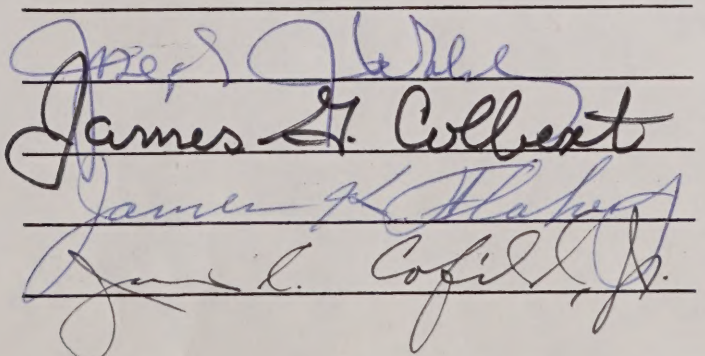 Joseph J.
James G. Colbert
James K. Flaherty
James E. Cofield, Jr.